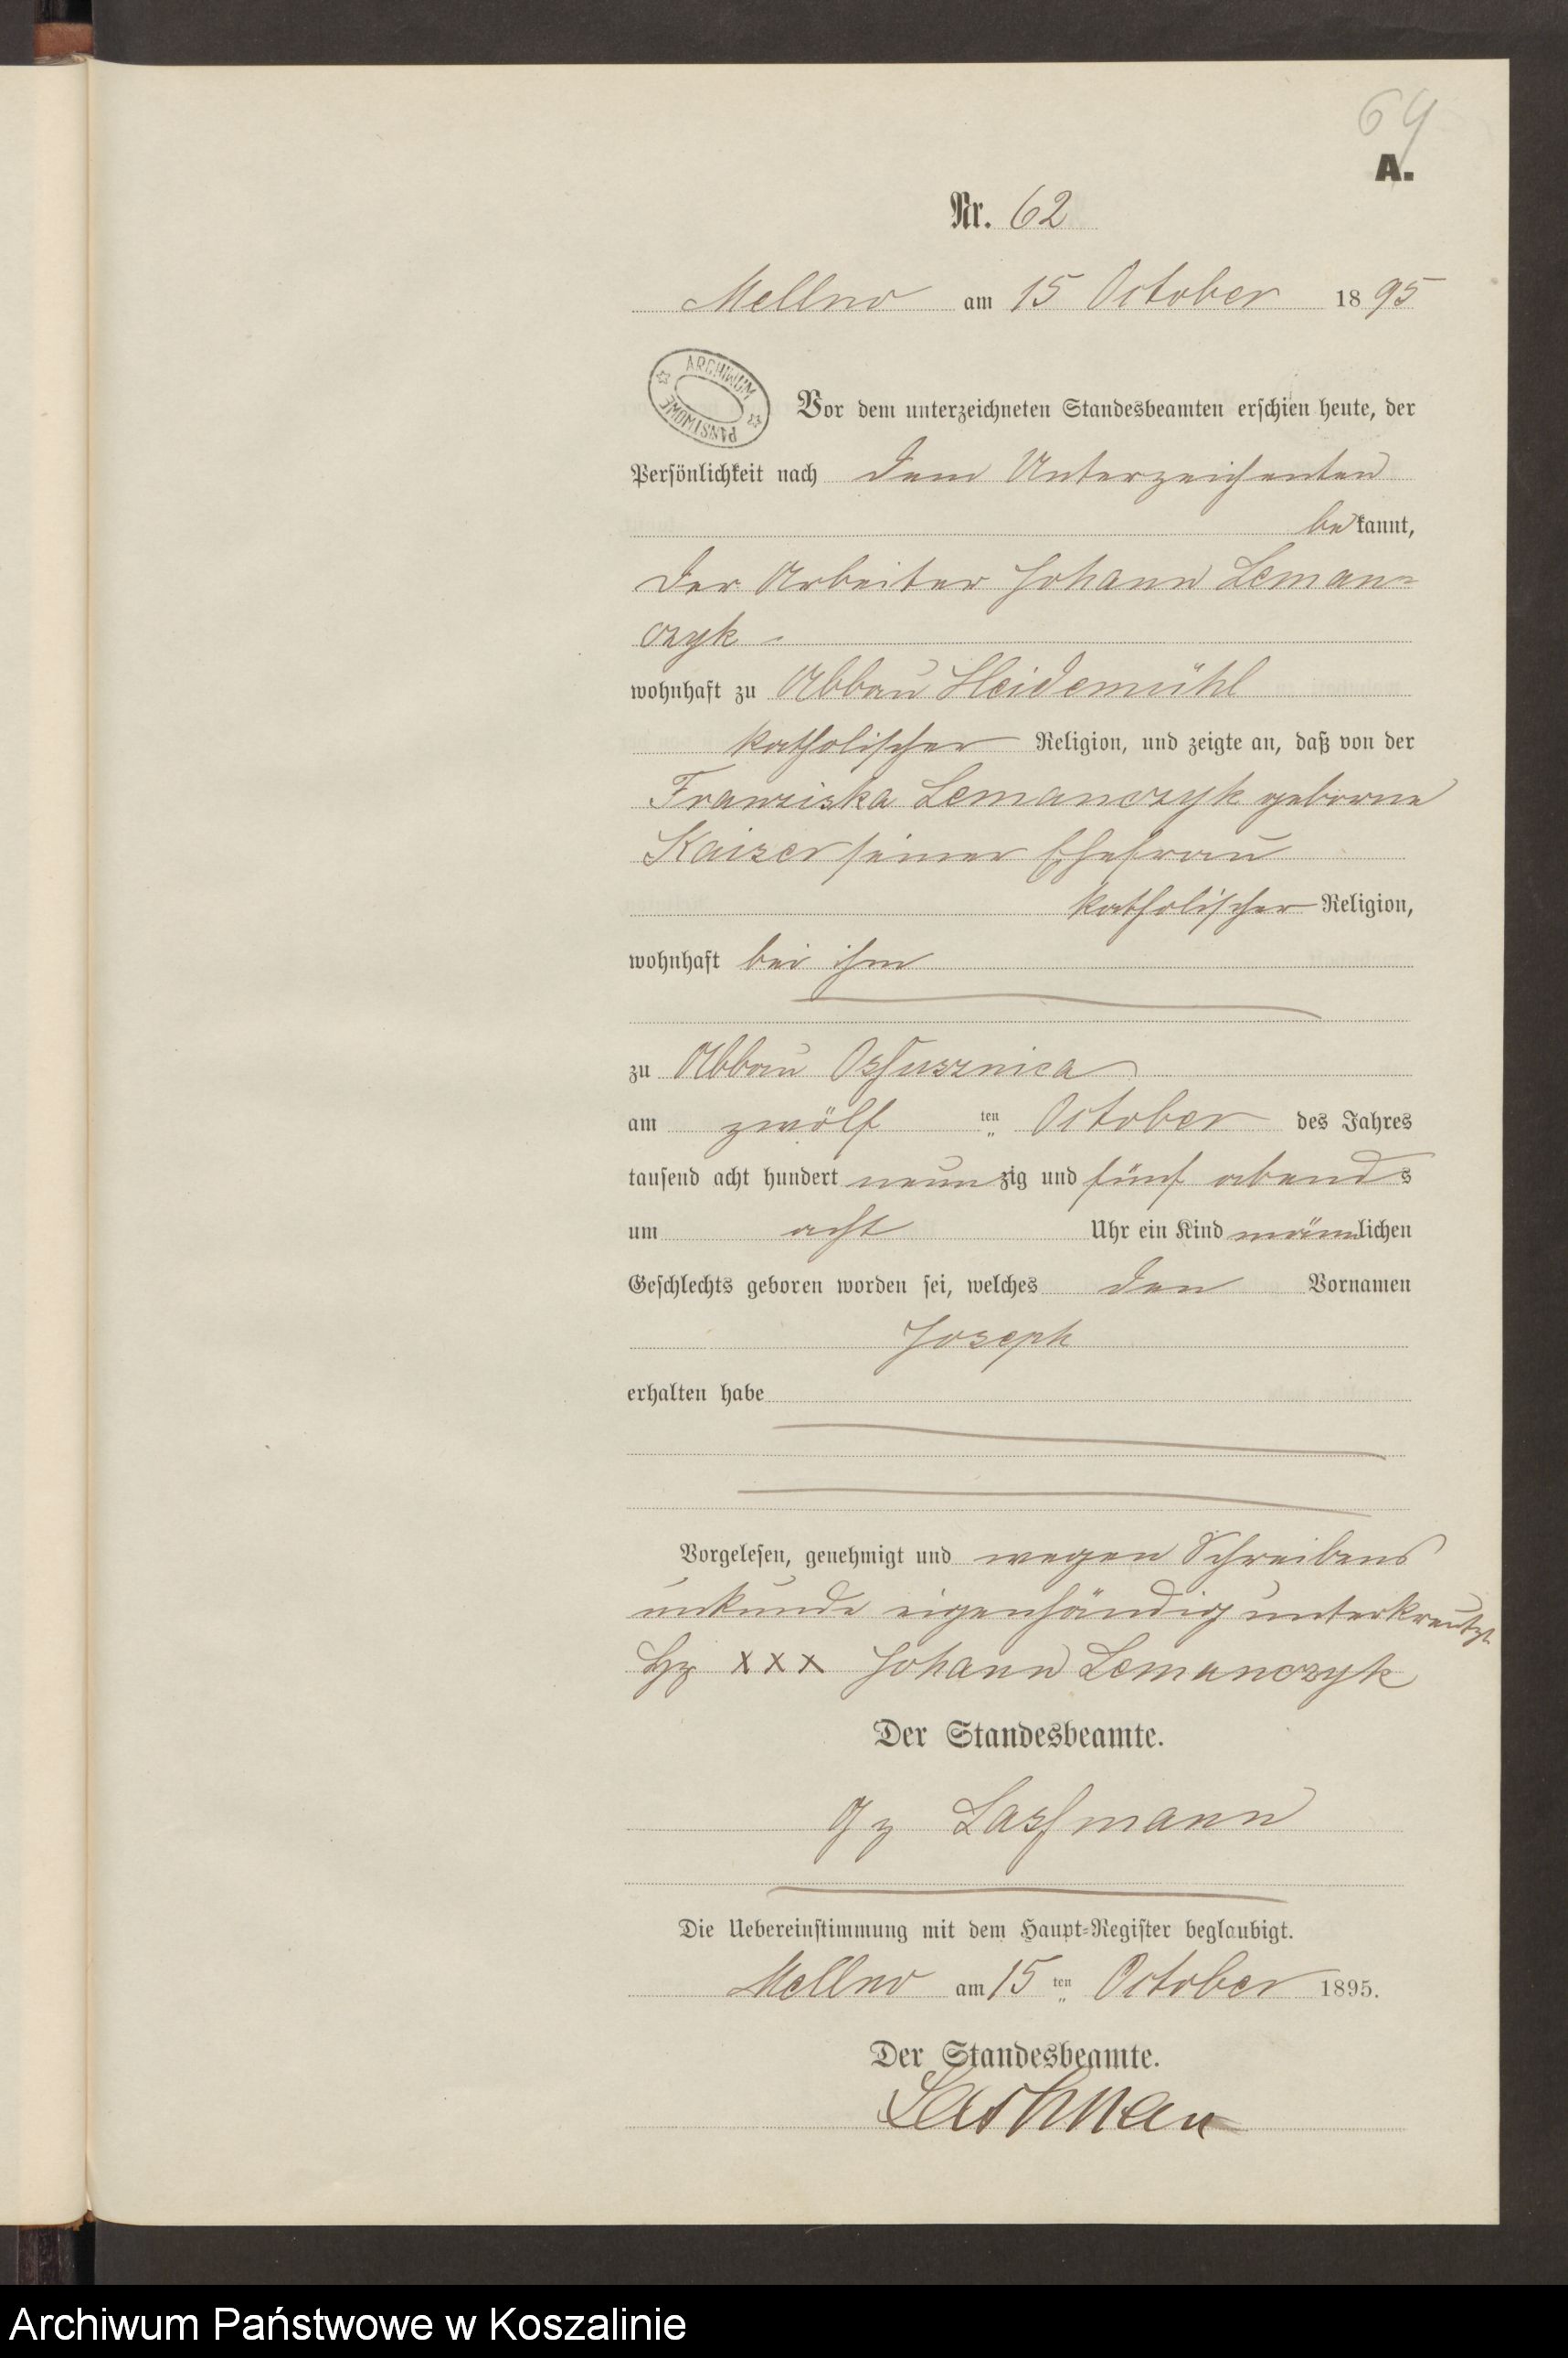 64
A.
Nr. 62
Mellno am 15 October 1895
ARCHIWUM PAŃSTWOWE
Vor dem unterzeichneten Standesbeamten erschien heute, der
Persönlichkeit nach dem Unterzeichenten
bekannt,
der Arbeiter Johann Leman=
czyk
wohnhaft zu Abbau Heidemühl
katholischer Religion, und zeigte an, daß von der
Franziska Lemanczyk geborne
Kaiser seiner Ehefrau
katholischer Religion,
wohnhaft bei ihm
zu Abbau Ossusznica
am zwölf ten October des Jahres
tausend acht hundert neunzig und fünf abends
um acht Uhr ein Kind männlichen
Geschlechts geboren worden sei, welches den Vornamen
Joseph
erhalten habe
Vorgelesen, genehmigt und wegen Schreibens
unkunde eigenhändig unterkreutzt
Hz XXX Johann Lemanczyk
Der Standesbeamte.
gz Lassmann
Die Uebereinstimmung mit dem Haupt=Register beglaubigt.
Mellno am 15 ten October 1895.
Der Standesbeamte.
Archiwum Państwowe w Koszalinie